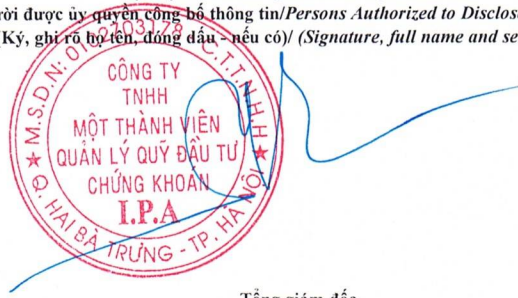 rời được ủy quyền công bố thông tin/Persons Authorized to Disclos
Ký, ghi rõ họ tên, đóng dấu - nếu có)/ (Signature, full name and se
M.S.D.N: C.T.T.N.H.H
CÔNG TY
TNHH
MỘT THÀNH VIÊN
QUẢN LÝ QUỸ ĐẦU TƯ
CHỨNG KHOÁN
I.P.A
Q. HAI BÀ TRƯNG - TP. HÀ NỘI
Tổng giám đốc